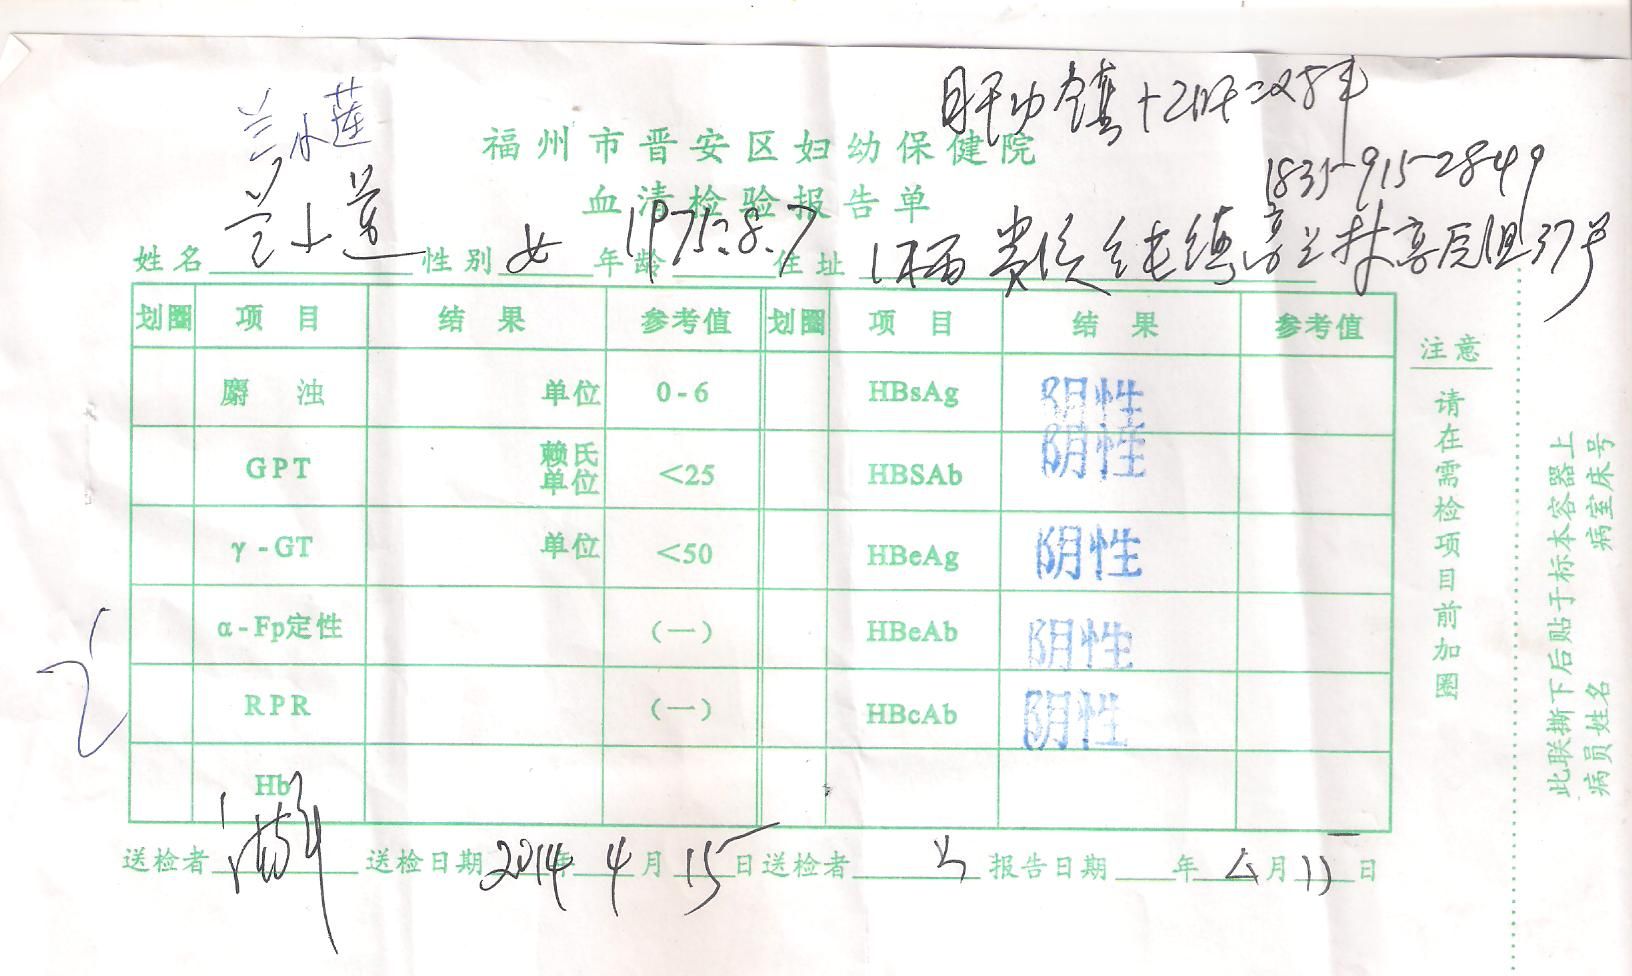 兰水莲
福州市晋安区妇幼保健院
1835-915-2849
血清检验报告单
姓名 性别 女 年龄 1975.8.7 住址 37号
划圈 项目 结果 参考值 划圈 项目 结果 参考值
麝浊 单位 0-6 HBsAg 阴性
GPT 赖氏单位 <25 HBSAb 阴性
γ-GT 单位 <50 HBeAg 阴性
α-Fp定性 (一) HBeAb 阴性
RPR (一) HBcAb 阴性
Hb
送检者 送检日期 2014年 4月 15日 送检者 报告日期 年 月 日
注意
请在需检项目前加圈
此联撕下后贴于标本容器上
病员姓名 病室床号